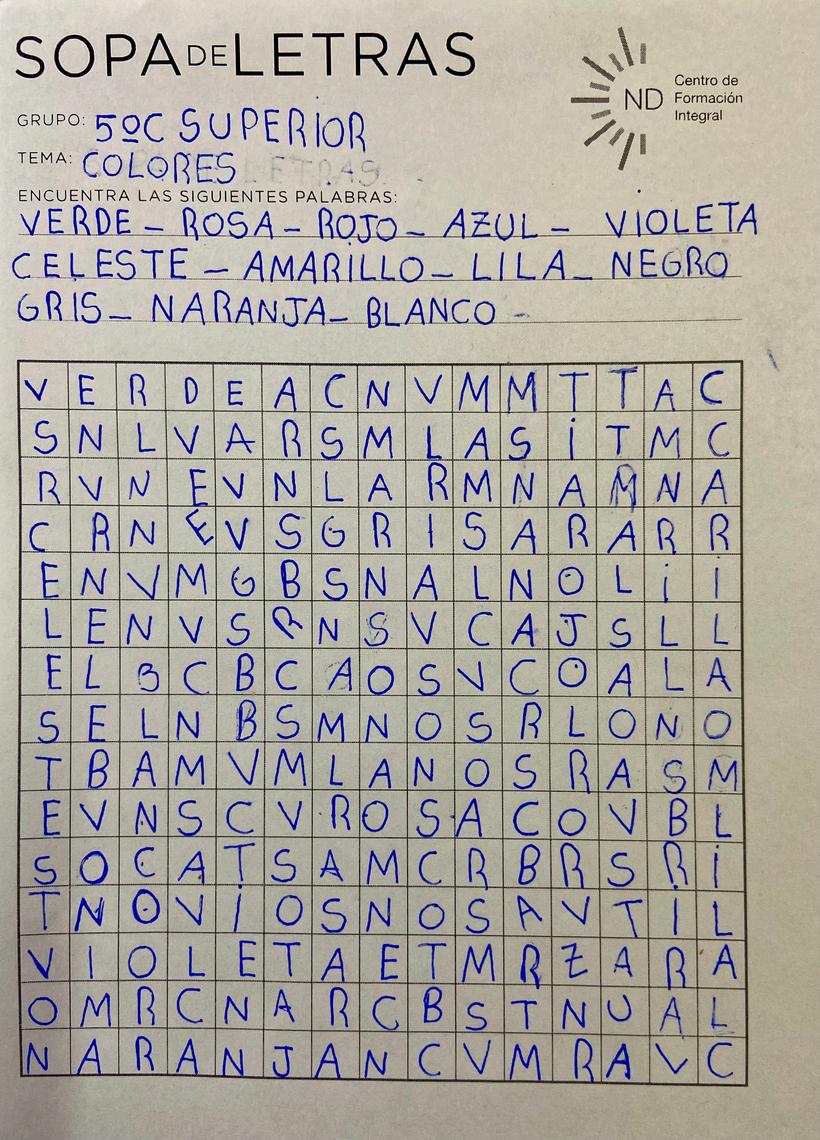 SOPA DE LETRAS
ND Centro de Formación Integral
GRUPO: 5ºC SUPERIOR
TEMA: COLORES
ENCUENTRA LAS SIGUIENTES PALABRAS:
VERDE - ROSA - ROJO - AZUL - VIOLETA
CELESTE - AMARILLO - LILA - NEGRO
GRIS - NARANJA - BLANCO -
V E R D E A C N V M M T T A C
S N L V A R S M L A S I T M C
R V N E V N L A R M N A M N A
C R N E V S G R I S A R A R R
E N V M G B S N A L N O L i I
L E N V S R N S V C A J S L L
E L B C B C A O S V C O A L A
S E L N B S M N O S R L O N O
T B A M V M L A N O S R A S M
E V N S C V R O S A C O V B L
S O C A T S A M C R B R S R i
T N O V i O S N O S A V T I L
V I O L E T A E T M R Z A R A
O M R C N A R C B S T N U A L
N A R A N J A N C V M R A V C